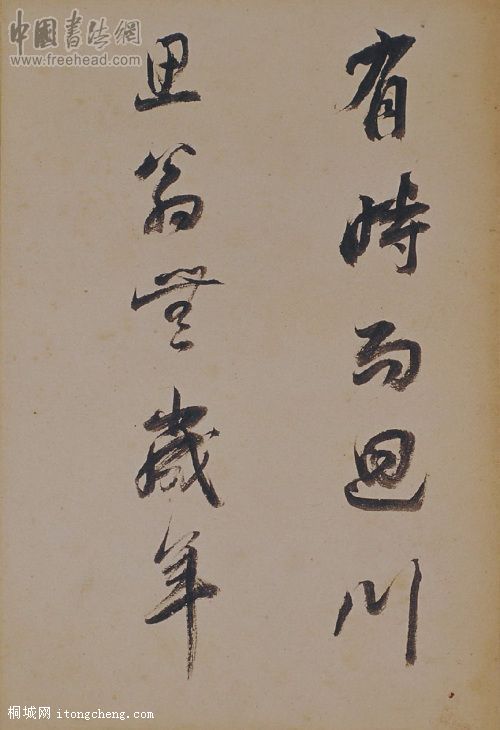 中國書法網
www.freehead.com
有時而迴川
里翁無歲年
桐城网 itongcheng.com